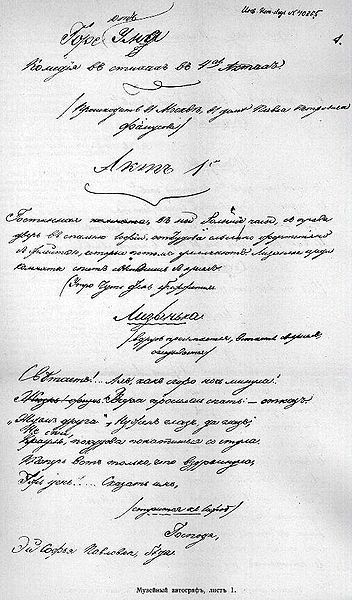 отъ
Горе Ума
Комедія въ стихахъ въ 4хъ Актахъ
1.
(Происходитъ въ Москвѣ, въ домѣ Павла
Фамусова)
Актъ 1й
Гостинная комната, въ ней часы, съ права
дверь въ спальню Софіи, откудова слышно фортопіано
съ флейтою, которыя потомъ умолкаютъ. Лизанька среди
комнаты спитъ, свѣсившись съ креселъ.
(Утро чуть день брежжится)
Лизынька
(вдругъ просыпается, встаетъ съ креселъ,
оглядывается)
Свѣтаетъ!.. Ахъ, какъ скоро ночь минула!
Вчера просилась спать: – отказъ
„Ждемъ друга“ – Нуженъ глазъ, да глазъ;
Не спи,
покудова не скатишься со стула.
Теперь вотъ только, что вздремнула,
Ужъ день!.... Сказать имъ,
(стучится къ Софіи)
Господа,
Эй Софья Павловна, бѣда.
Музейный автографъ, листъ 1.